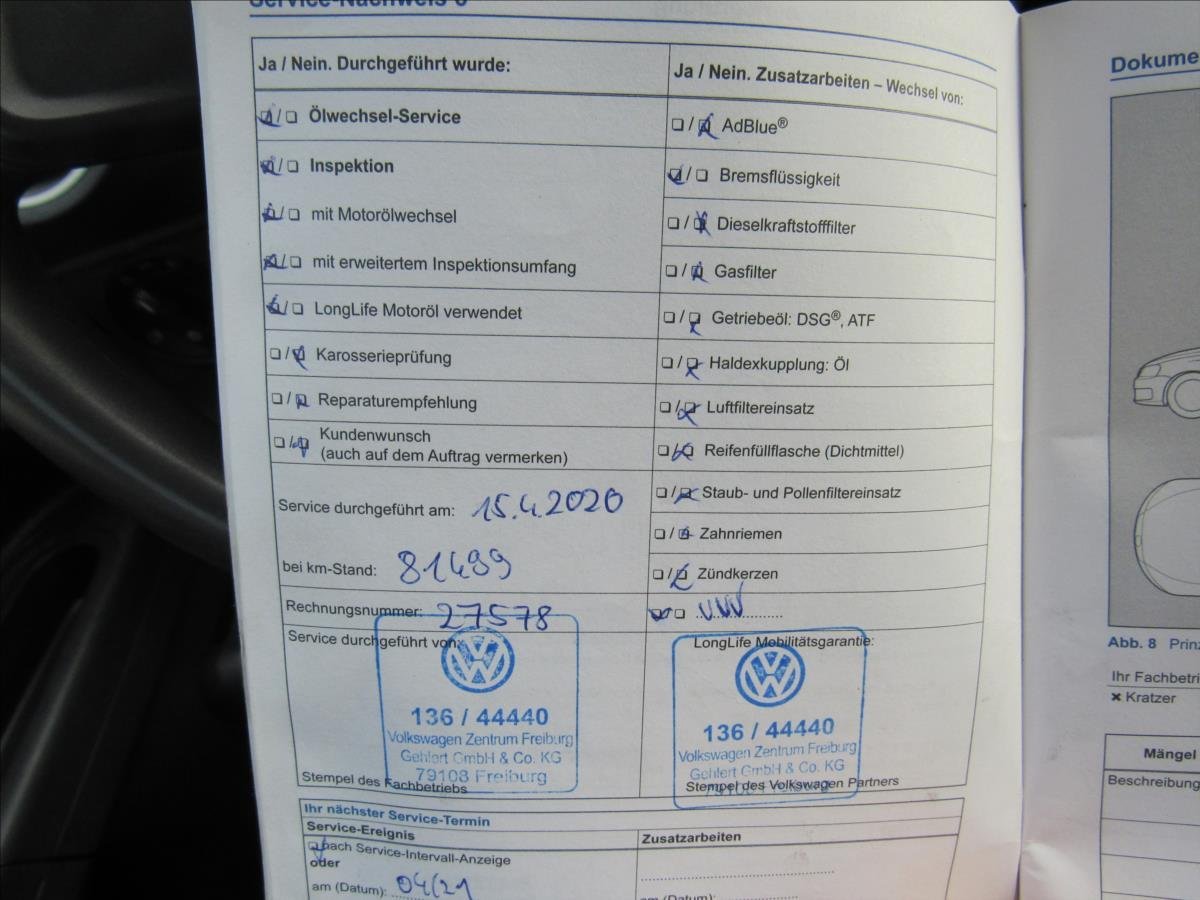 Service-Nachweis
Ja / Nein. Durchgeführt wurde:
☒/☐ Ölwechsel-Service
☒/☐ Inspektion
☒/☐ mit Motorölwechsel
☒/☐ mit erweitertem Inspektionsumfang
☒/☐ LongLife Motoröl verwendet
☐/☒ Karosserieprüfung
☐/☒ Reparaturempfehlung
☐/☒ Kundenwunsch
(auch auf dem Auftrag vermerken)
Service durchgeführt am: 15.4.2020
bei km-Stand: 81499
Rechnungsnummer: 27578
Service durchgeführt von:
VW
136 / 44440
Volkswagen Zentrum Freiburg
Gehlert GmbH & Co. KG
79108 Freiburg
Stempel des Fachbetriebs
Ja / Nein. Zusatzarbeiten – Wechsel von:
☐/☒ AdBlue®
☒/☐ Bremsflüssigkeit
☐/☒ Dieselkraftstofffilter
☐/☒ Gasfilter
☐/☒ Getriebeöl: DSG®, ATF
☐/☒ Haldexkupplung: Öl
☐/☒ Luftfiltereinsatz
☐/☒ Reifenfüllflasche (Dichtmittel)
☐/☒ Staub- und Pollenfiltereinsatz
☐/☒ Zahnriemen
☐/☒ Zündkerzen
LongLife Mobilitätsgarantie:
VW
136 / 44440
Volkswagen Zentrum Freiburg
Gehlert GmbH & Co. KG
Stempel des Volkswagen Partners
Ihr nächster Service-Termin
Service-Ereignis
nach Service-Intervall-Anzeige
oder
am (Datum): 04/21
Zusatzarbeiten
am (Datum):
Dokume
Abb. 8 Prinz
Ihr Fachbetri
✖ Kratzer
Mängel
Beschreibung